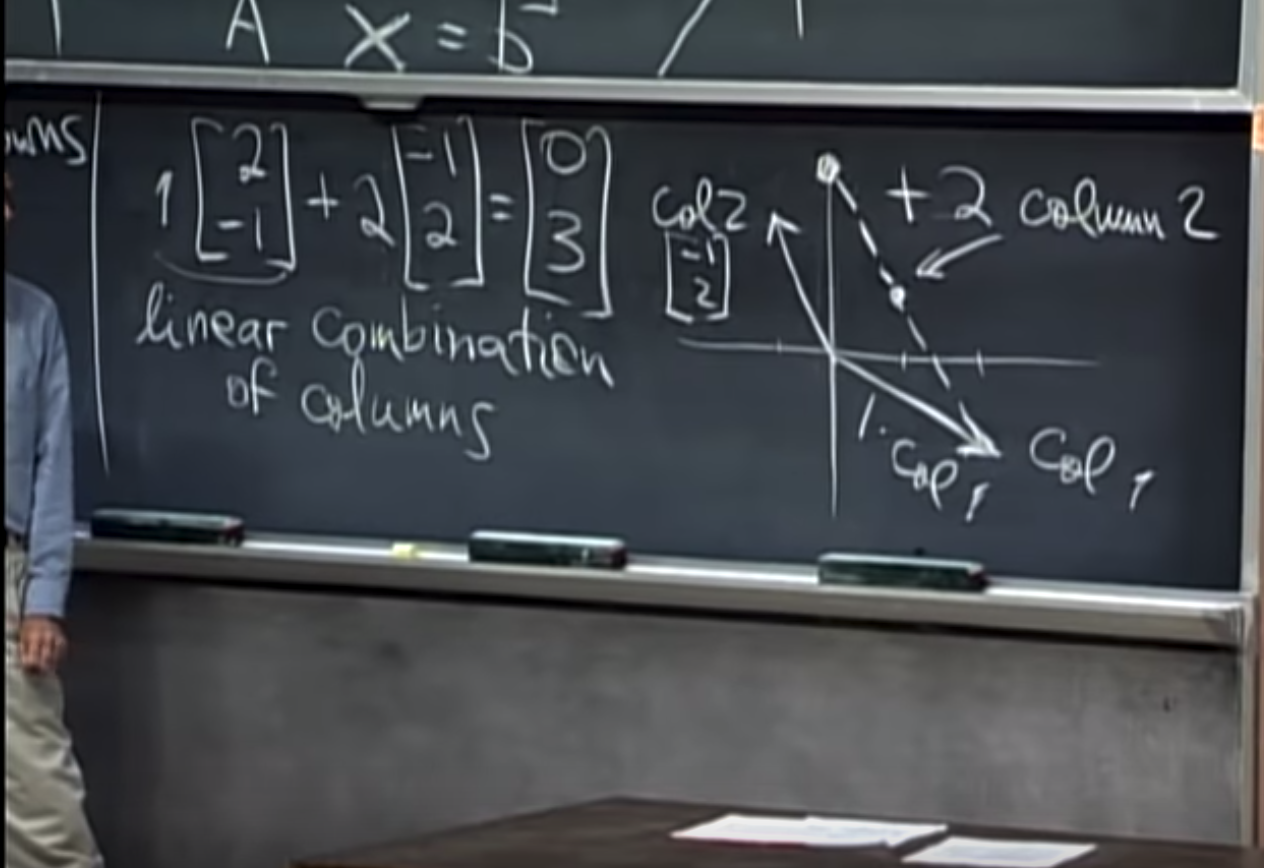 A x = b
1 [2 -1] + 2 [-1 2] = [0 3]
linear combination
of columns
col 2
[-1 2]
+ 2 column 2
1. col 1
col 1